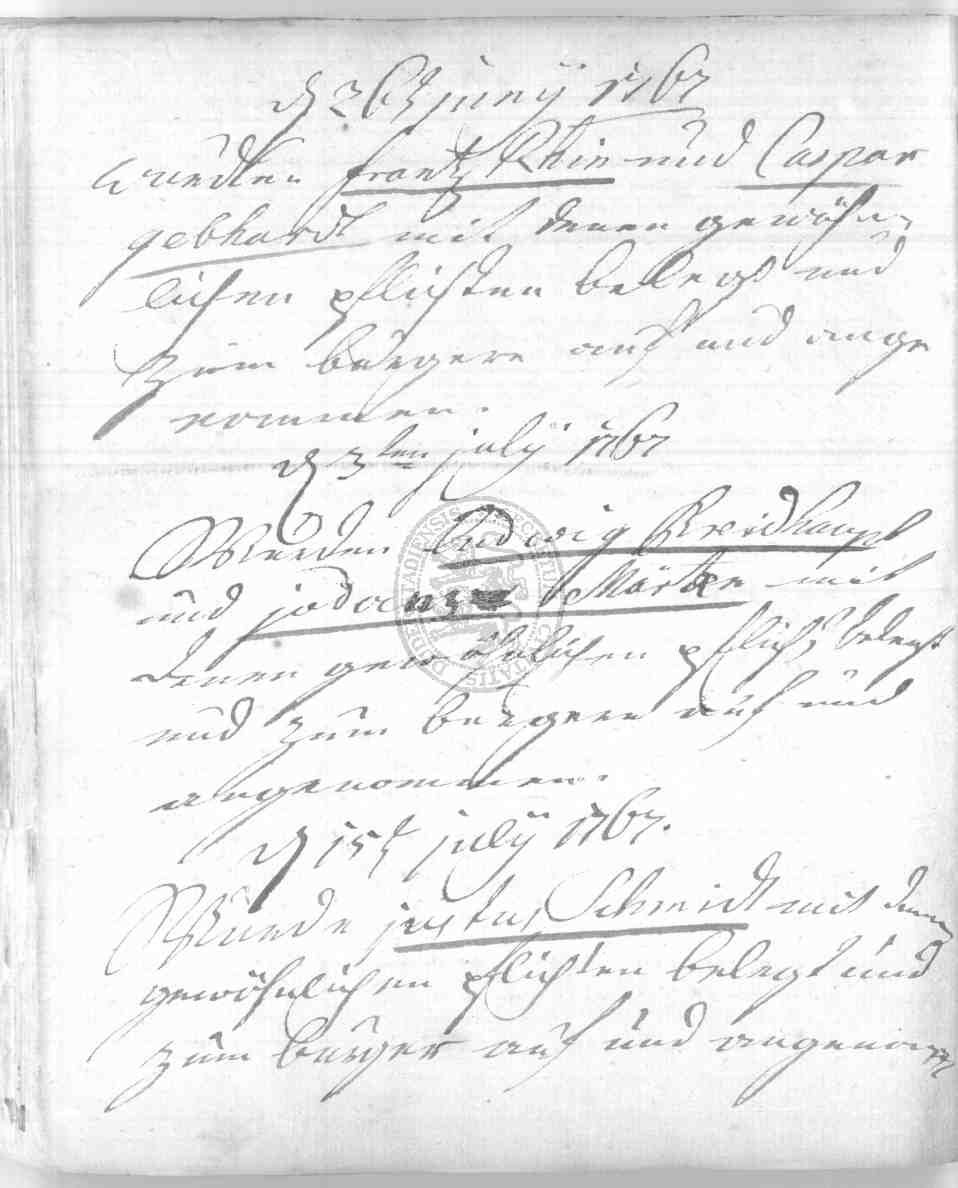 d 26t junÿ 1767
wurden frantz Rhin und Caspar
gebhardt mit denen gewöhn-
lichen pflichten belegt und
zum bürgere auf und ange
nommen.
d 3ten julÿ 1767
Wurden Ludwig Breidhaupt
und Märten mit
denen gewöhnlichen pflicht belegt
und zum bürgere auf und
angenommen.
d 15t julÿ 1767.
Wurde justus Schmidt mit denen
gewöhnlichen pflichten belegt und
zum bürger auf und angenom̅